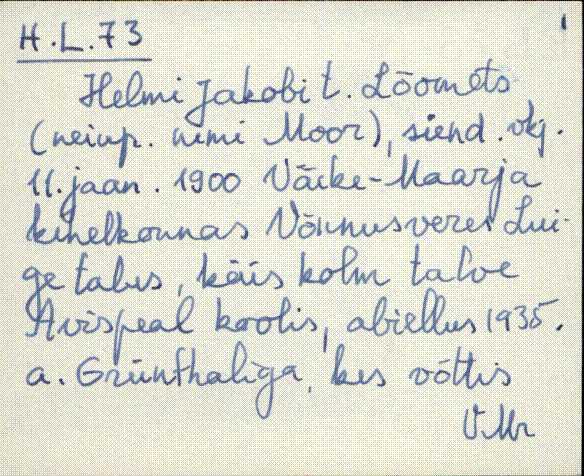 H.L.73
Helmi Jakobi t. Lõomets
(neiup. nimi Moor), siend. vkj.
11. jaan. 1900 Väike-Maarja
kihelkonnas Võnnusveres Lui-
ge talus, käis kolm talve
Avispeal koolis, abiellus 1935.
a. Grünthaliga, kes võttis
V.Mr